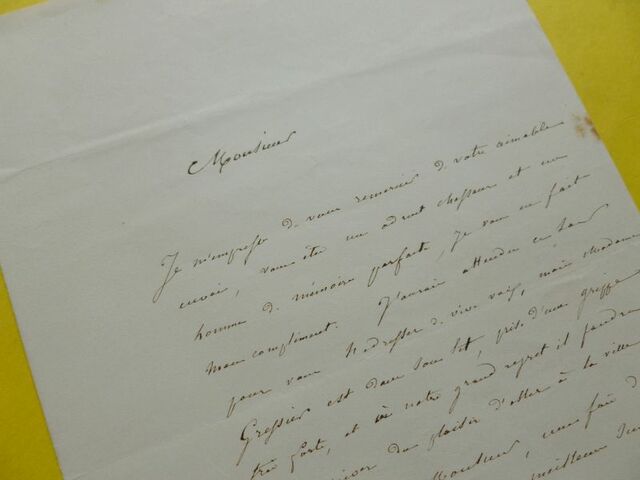 Monsieur
Je m'empresse de vous remercier de votre aimable
envoi, vous êtes un adroit chasseur et un
homme de mémoire parfaite, je vous en fait
mon compliment. J'aurais attendu ce soir
pour vous l'adresser de vive voix, mais Madame
Gressier est dans son lit, prise d'une grippe
très forte, et à notre grand regret il faudra
priver du plaisir d'aller à la ville
Monsieur, une fois d
meilleur